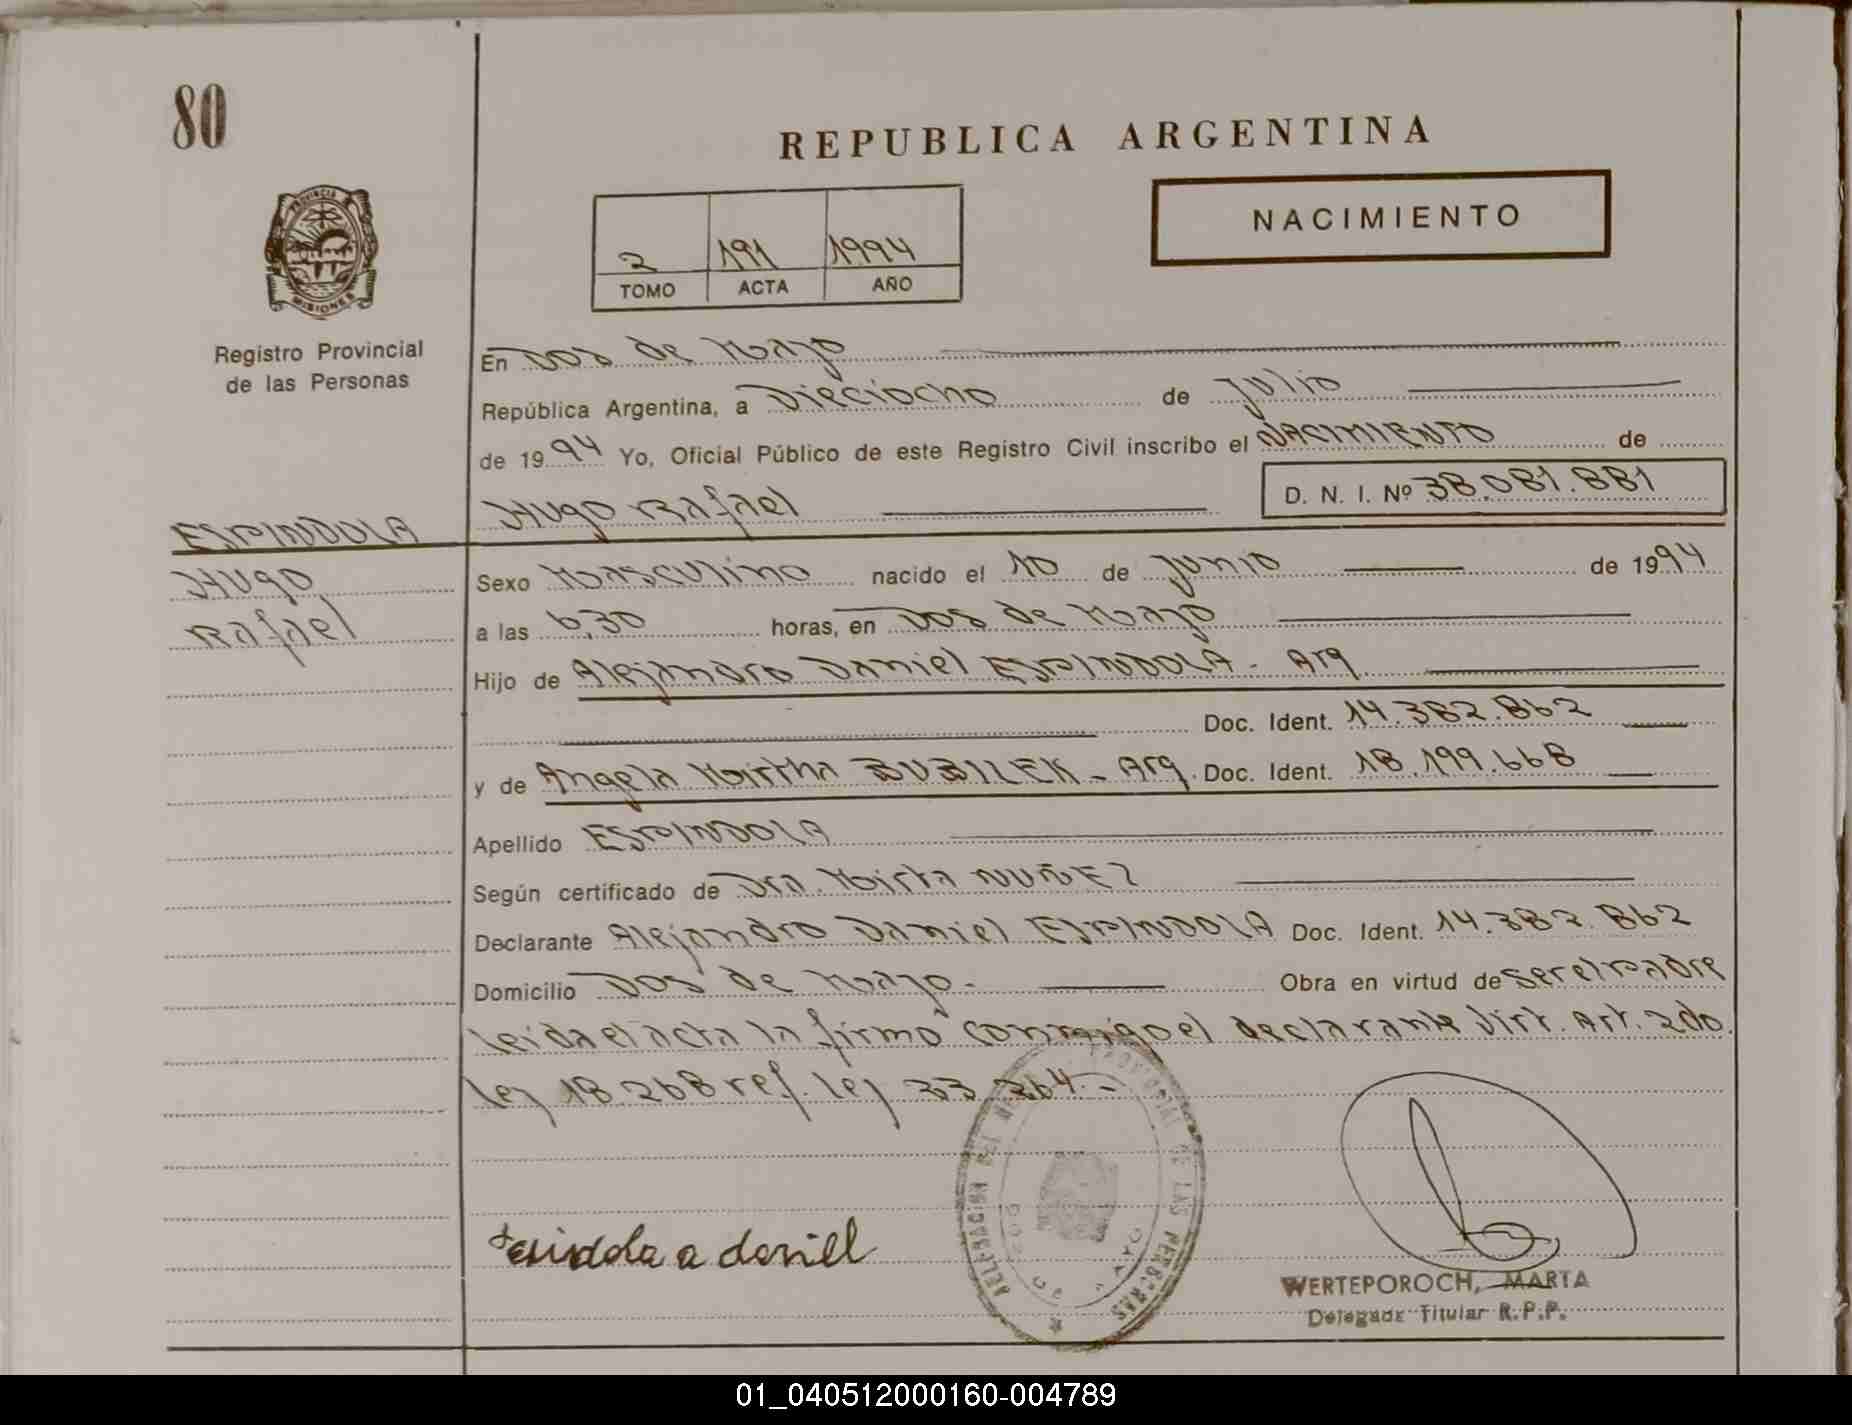 80
REPUBLICA ARGENTINA
NACIMIENTO
2 191 1994
TOMO ACTA AÑO
PROVINCIA MISIONES
Registro Provincial
de las Personas
En Dos de Mayo
República Argentina, a Dieciocho de Julio
de 1994 Yo, Oficial Público de este Registro Civil inscribo el NACIMIENTO de
Hugo Rafael D. N. I. Nº 38.081.881
ESPINDOLA
Hugo
Rafael
Sexo Masculino nacido el 10 de Junio de 1994
a las 6,30 horas, en Dos de Mayo
Hijo de Alejandro Daniel ESPINDOLA - Arg
Doc. Ident. 14.382.862
y de Angela Mirtha BUBILEK - Arg. Doc. Ident. 18.199.668
Apellido ESPINDOLA
Según certificado de Dra. Mirta NUÑEZ
Declarante Alejandro Daniel ESPINDOLA Doc. Ident. 14.382.862
Domicilio Dos de Mayo. Obra en virtud de ser el padre
Leida el acta la firmo conmigo el declarante Art. 2do.
ley 18.268 ref. ley 23.264.-
a daniel
DE LAS PERSONAS
DOS DE MAYO
WERTEPOROCH, MARTA
Delegada Titular R.P.P.
01_040512000160-004789